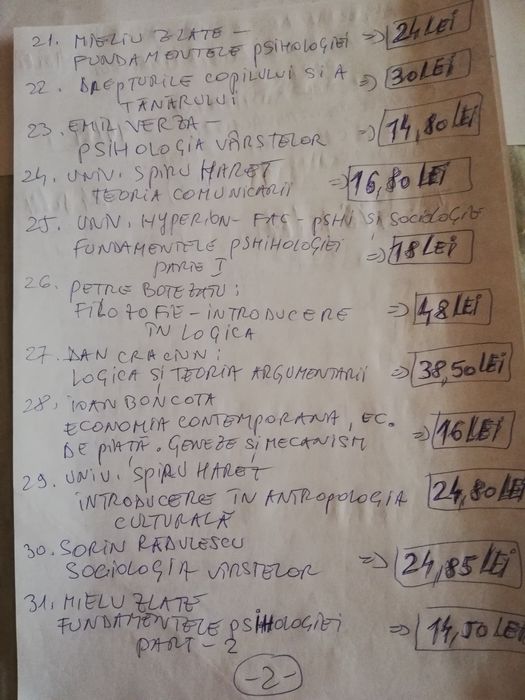 21. MIELIU ZLATE –
FUNDAMENTELE PSIHOLOGIEI => 24 LEI
22. DREPTURILE COPILULUI SI A => 30 LEI
TÂNARULUI
23. EMIL VERZA – => 14,80 LEI
PSIHOLOGIA VÂRSTELOR
24. UNIV. SPIRU HARET => 16,80 LEI
TEORIA COMUNICARII
25. UNIV. HYPERION – FAC – PSIHI SI SOCIOLOGIE
FUNDAMENTELE PSIHIHOLOGIEI => 18 LEI
PARTE I
26. PETRE BOTEZATU :
FILOZOFIE – INTRODUCERE => 48 LEI
ÎN LOGICA
27. DAN CRACIUN :
LOGICA SI TEORIA ARGUMENTARII => 38,50 LEI
28. IOAN BONCOTA
ECONOMIA CONTEMPORANA, EC. => 16 LEI
DE PIATĂ. GENEZE SI MECANISM
29. UNIV. SPIRU HARET
INTRODUCERE IN ANTROPOLOGIA 24,80 LEI
CULTURALĂ
30. SORIN RADULESCU
SOCIOLOGIA VÂRSTELOR => 24,85 LEI
31. MIELU ZLATE
FUNDAMENTELE PSIHOLOGIEI => 14,50 LEI
PART – 2
-2-